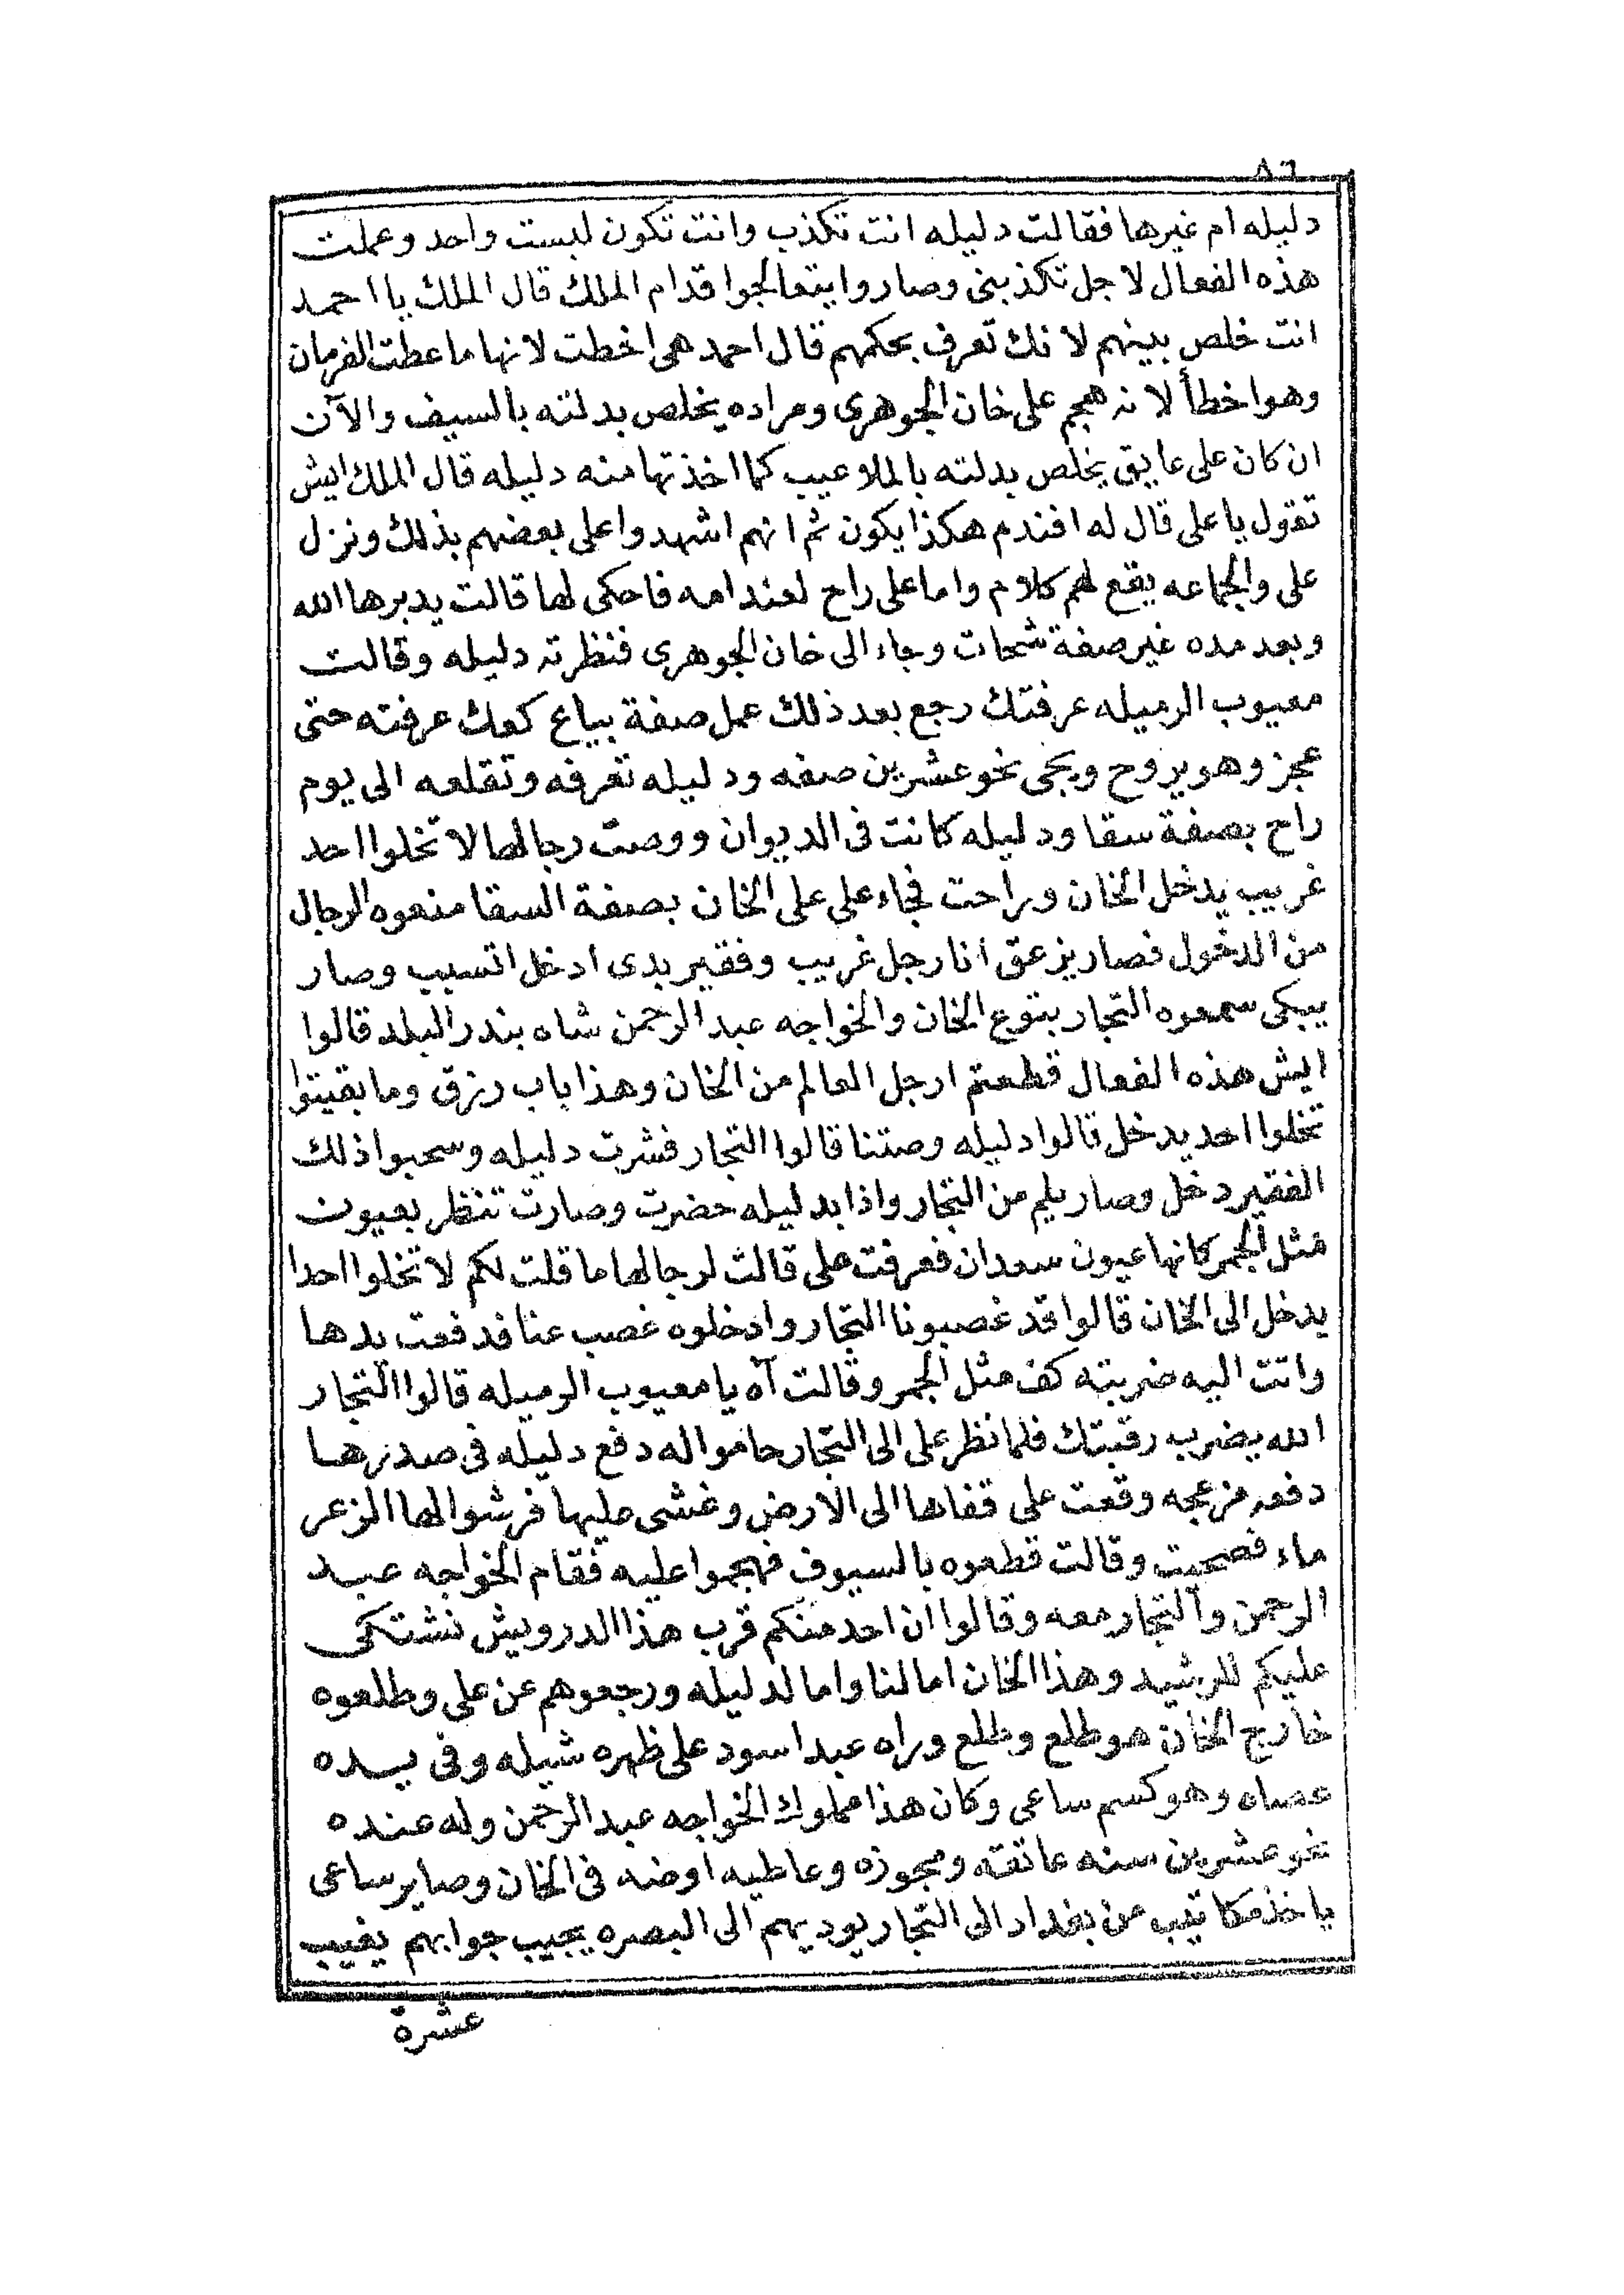 ٨٦
دليله ام غيرها فقالت دليله انت تكذب وانت تكون لبست واحد وعملت
هذه الفعال لاجل تكذبنى وصاروا يتعالجوا قدام الملك قال الملك يا احمد
انت خلص بينهم لانك تعرف بحكمهم قال احمد هى اخطت لانها ما عطت الفرمان
وهو اخطأ لانه هجم على خان الجوهرى ومراده يخلص بدلته بالسيف والآن
ان كان على عايق يخلص بدلته بالملاعيب كما اخذتها منه دليله قال الملك ايش
تقول يا على قال له افندم هكذا يكون ثم انهم اشهدوا على بعضهم بذلك ونزل
على والجماعه يقع لهم كلام واما على راح لعند امه فاحكى لها قالت يدبرها الله
وبعد مده غير صفة شحات وجاء الى خان الجوهرى فنظرته دليله وقالت
معيوب الرميله عرفتك رجع بعد ذلك عمل صفة بياع كعك عرفته حتى
عجز وهو يروح ويجى نحو عشرين صفه ودليله تعرفه وتقلعه الى يوم
راح بصفة سقا ودليله كانت فى الديوان ووصت رجالها لا تخلوا احد
غريب يدخل الخان وراحت فجاء على على الخان بصفة السقا منعوه الرجال
من الدخول فصار يزعق انا رجل غريب وفقير بدى ادخل اتسبب وصار
يبكى سمعوه التجار بتوع الخان والخواجه عبد الرحمن شاه بندر البلد قالوا
ايش هذه الفعال قطعتم ارجل العالم من الخان وهذا باب رزق وما بقيتوا
تخلوا احد يدخل قالوا دليله وصتنا قالوا التجار فشرت دليله وسحبوا ذلك
الفقير دخل وصار يلم من التجار واذا بدليله حضرت وصارت تنظر بعيون
مثل الجمر كانها عيون سعدان فعرفت على قالت لرجالها ما قلت لكم لا تخلوا احدا
يدخل الى الخان قالوا قد غصبونا التجار وادخلوه غصب عنا فدفعت يدها
واتت اليه ضربته كف مثل الجمر وقالت آه يا معيوب الرميله قالوا التجار
الله يضرب رقبتك فلما نظر على الى التجار حاموا له دفع دليله فى صدرها
دفعه مزعجه وقعت على قفاها الى الارض وغشى عليها فرشوا لها الزعر
ماء فصحت وقالت قطعوه بالسيوف فهجموا عليه فقام الخواجه عبد
الرحمن والتجار معه وقالوا ان احد منكم قرب هذا الدرويش نشتكى
عليكم للرشيد وهذا الخان اما لنا واما لدليله ورجعوهم عن على وطلعوه
خارج الخان هو طلع وطلع وراه عبد اسود على ظهره شيله وفى يسده
عصاه وهو كسم ساعى وكان هذا مملوك الخواجه عبد الرحمن وله عنده
نحو عشرين سنه عاتقه ومجوزه وعاطيه اوضه فى الخان وصاير ساعى
ياخذ مكاتيب من بغداد الى التجار يوديهم الى البصره يجيب جوابهم يغيب
عشرة